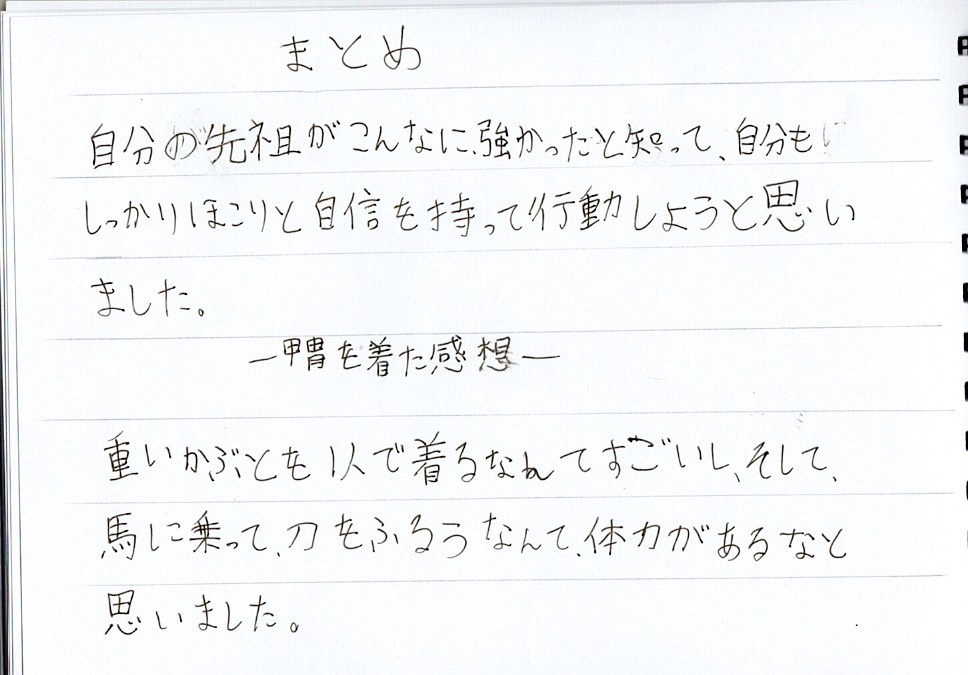 まとめ
自分の先祖がこんなに強かったと知って、自分も
しっかりほこりと自信を持って行動しようと思い
ました。
―甲冑を着た感想―
重いかぶとを1人で着るなんてすごいし、そして、
馬に乗って、刀をふるうなんて、体力があるなと
思いました。